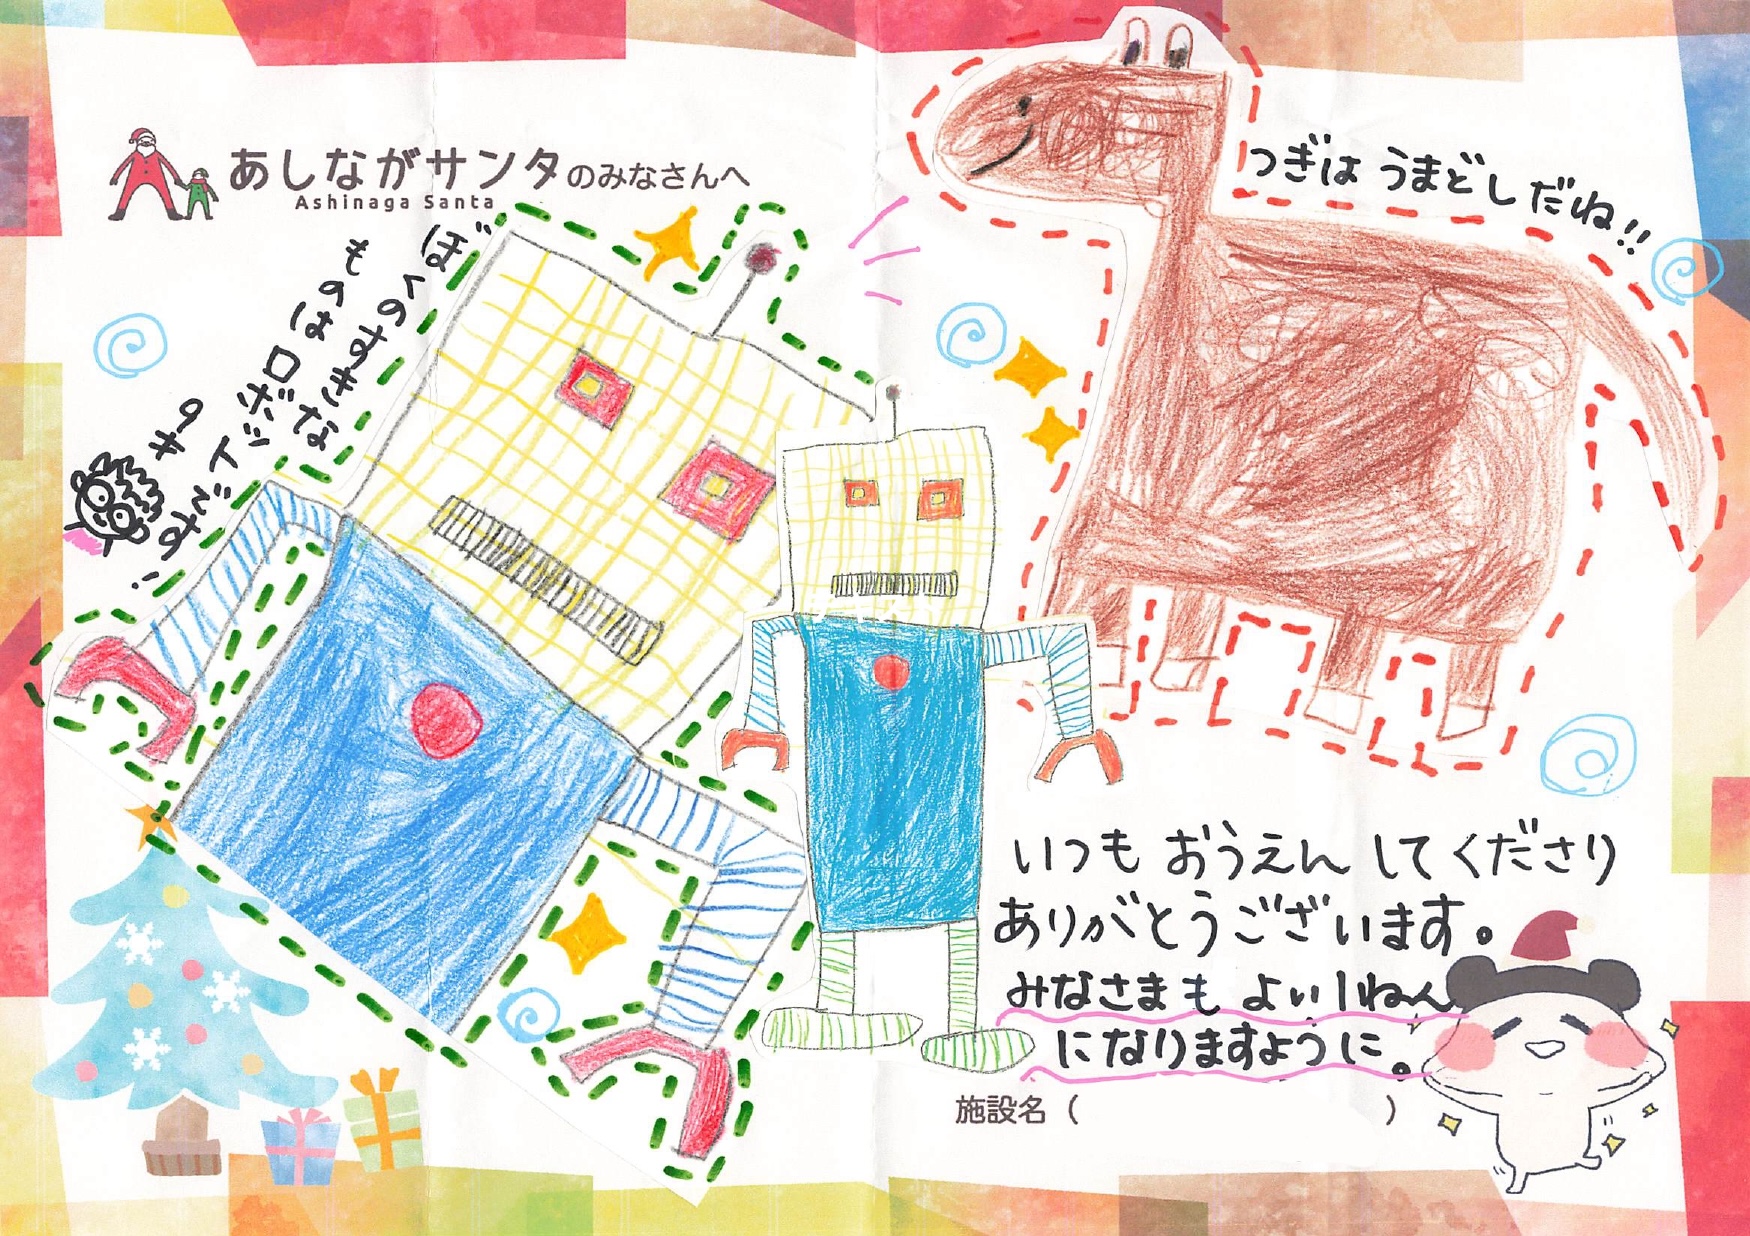 あしながサンタのみなさんへ
Ashinaga Santa
つぎは うまどしだね!!
ぼくのすきな
ものはロボット
いつも おうえん してくださり
ありがとうございます。
みなさまも よい1ねん
になりますように。
施設名（　　　）